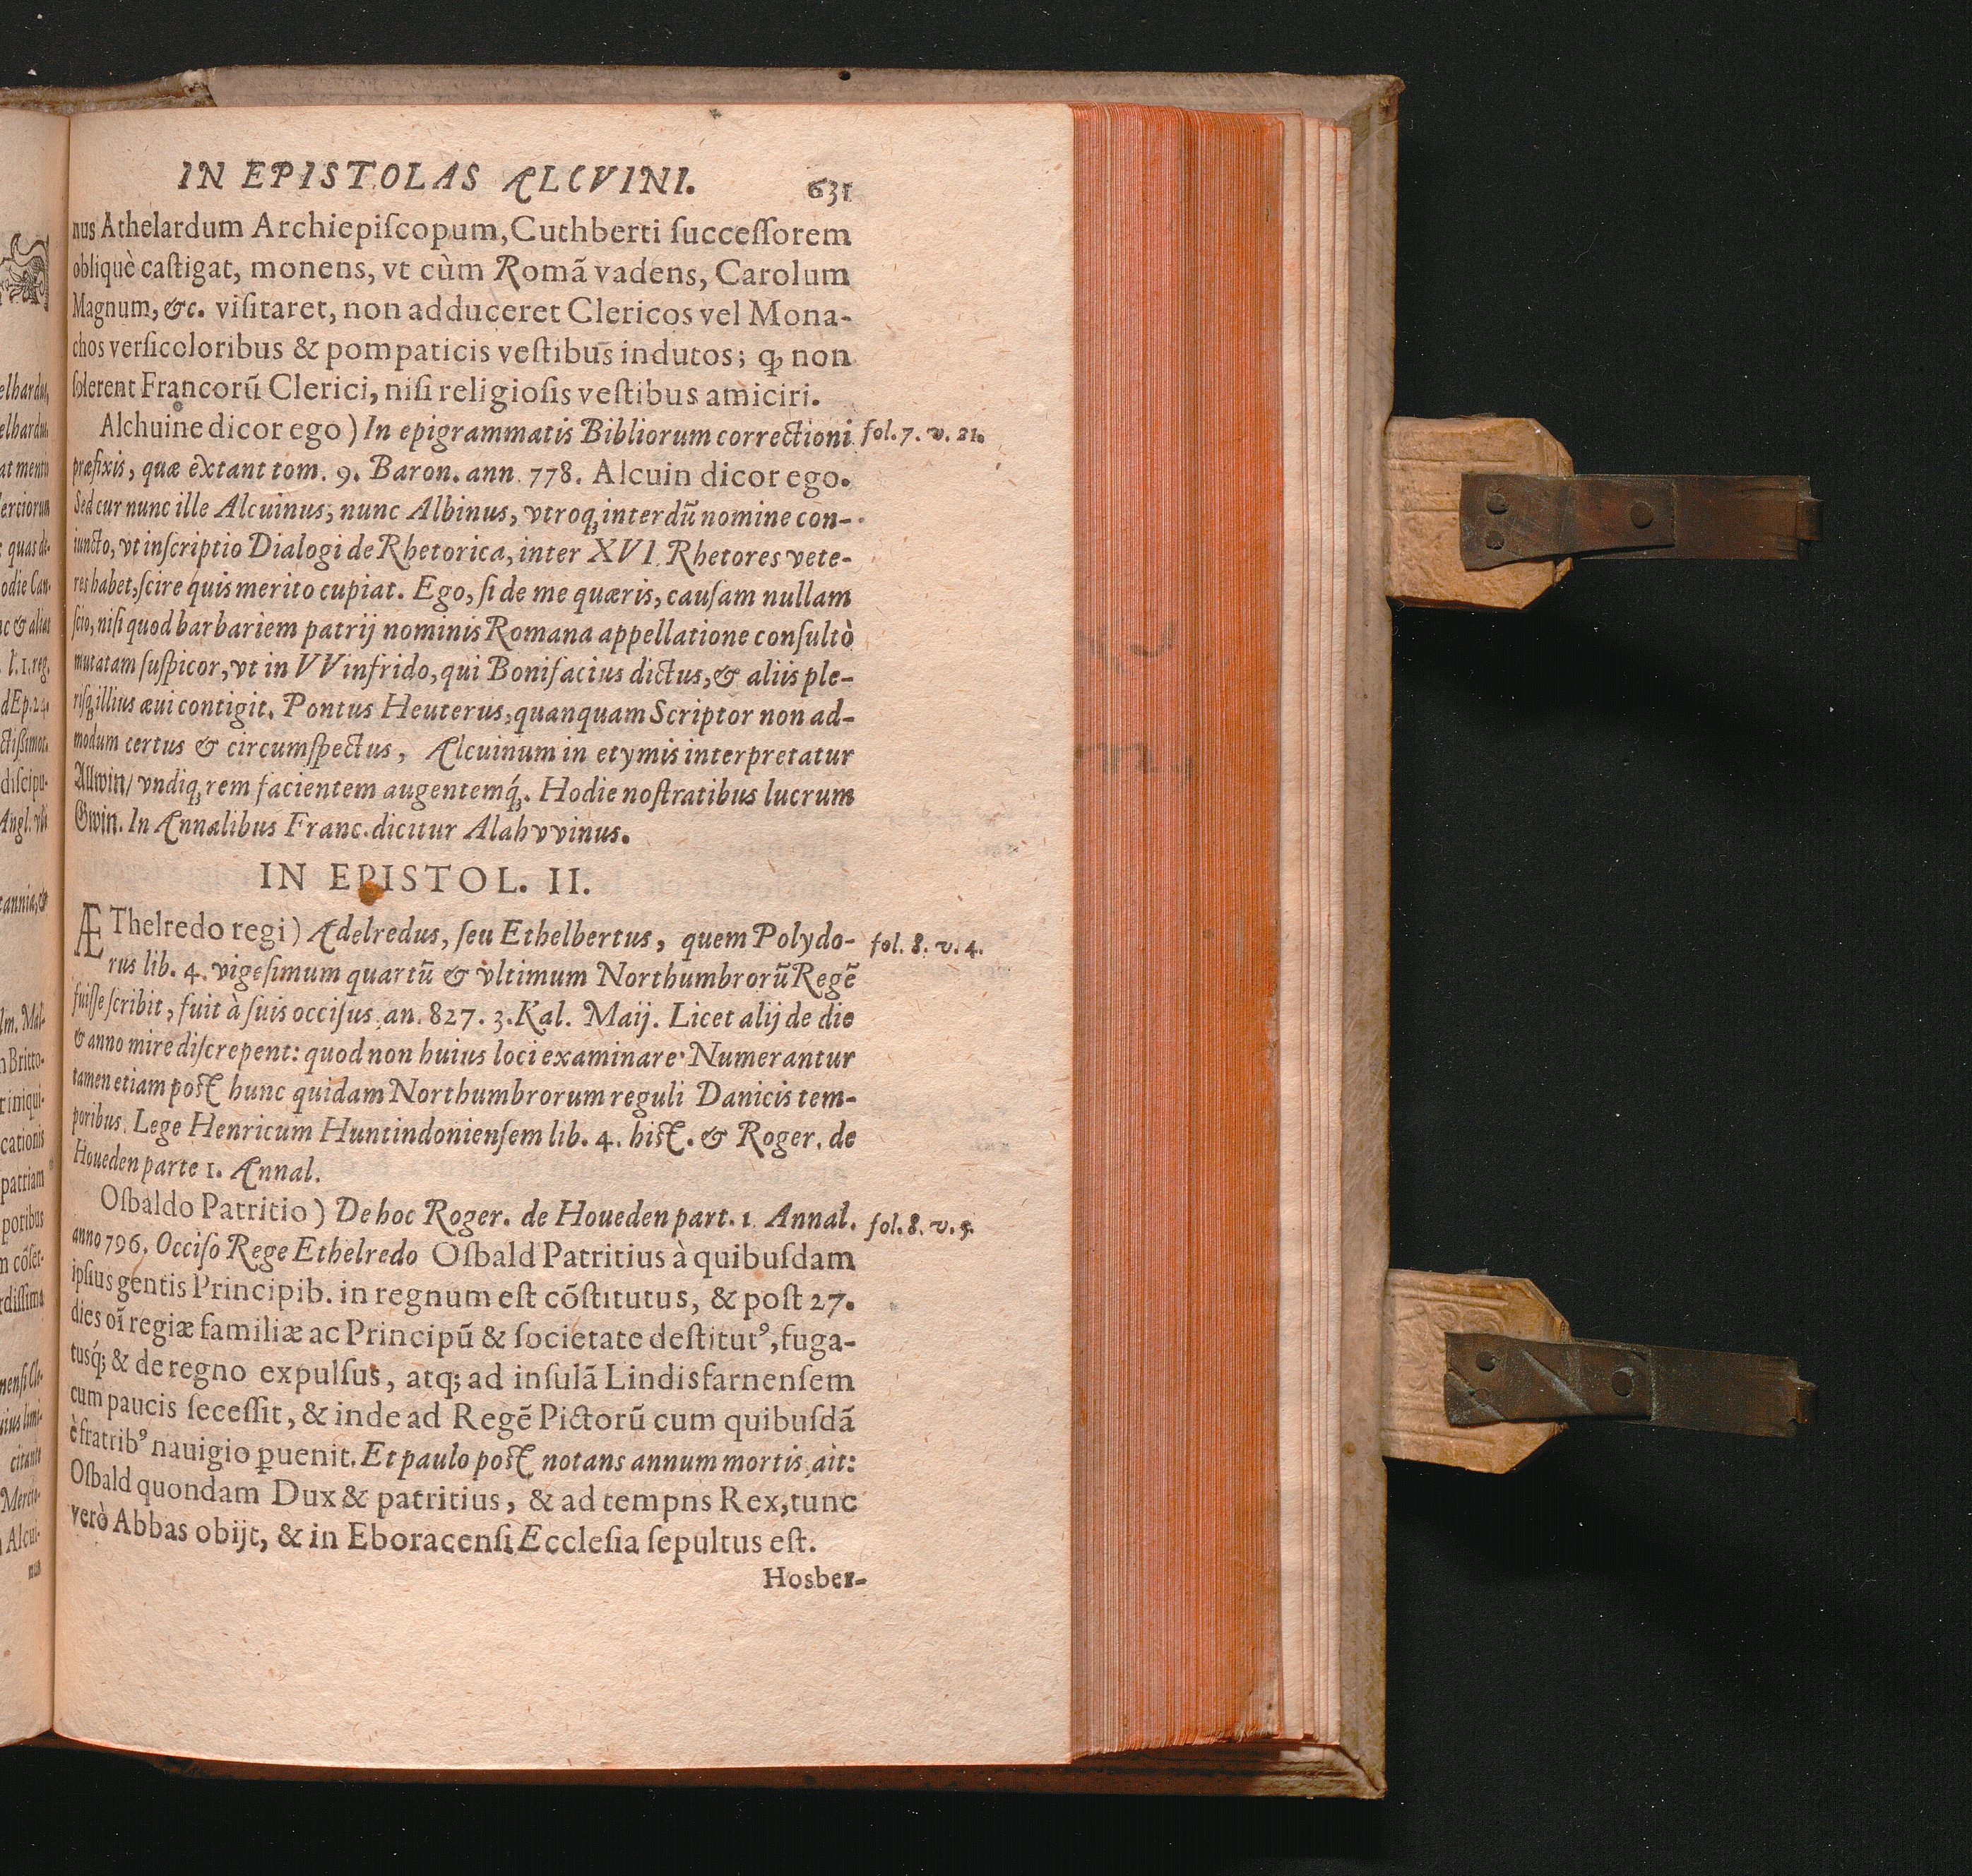 IN EPISTOLAS ALCVINI. 631
nus Athelardum Archiepiſcopum, Cuthberti ſucceſſorem
obliquè caſtigat, monens, vt cùm Romã vadens, Carolum
Magnum, &c. viſitaret, non adduceret Clericos vel Mona-
chos verſicoloribus & pompaticis veſtibus indutos; ꝙ non
ſolerent Francorũ Clerici, niſi religioſis veſtibus amiciri.
Alchuine dicor ego) In epigrammatis Bibliorum correctioni fol. 7. v. 21.
præfixis, quæ extant tom. 9. Baron. ann. 778. Alcuin dicor ego.
Sed cur nunc ille Alcuinus, nunc Albinus, vtroq; interdũ nomine con-
iuncto, vt inſcriptio Dialogi de Rhetorica, inter XVI. Rhetores vete-
res habet, ſcire quis merito cupiat. Ego, ſi de me quæris, cauſam nullam
ſcio, niſi quod barbariem patrij nominis Romana appellatione conſultò
mutatam ſuſpicor, vt in VVinfrido, qui Bonifacius dictus, & aliis ple-
riſq; illius æui contigit. Pontus Heuterus, quanquam Scriptor non ad-
modum certus & circumſpectus, Alcuinum in etymis interpretatur
Allwin/ vndiq; rem facientem augentemq́;. Hodie noſtratibus lucrum
Gwin. In Annalibus Franc. dicitur Alahvvinus.
IN EPISTOL. II.
ÆThelredo regi) Adelredus, ſeu Ethelbertus, quem Polydo- fol. 8. v. 4.
rus lib. 4. vigeſimum quartũ & vltimum Northumbrorũ Regẽ
fuiſſe ſcribit, fuit à ſuis occiſus an. 827. 3. Kal. Maij. Licet alij de die
& anno mire diſcrepent: quod non huius loci examinare. Numerantur
tamen etiam poſt hunc quidam Northumbrorum reguli Danicis tem-
poribus. Lege Henricum Huntindonienſem lib. 4. hiſt. & Roger. de
Houeden parte 1. Annal.
Oſbaldo Patritio) De hoc Roger. de Houeden part. 1. Annal. fol. 8. v. 5.
anno 796. Occiſo Rege Ethelredo Oſbald Patritius à quibuſdam
ipſius gentis Principib. in regnum eſt cõſtitutus, & poſt 27.
dies oĩ regiæ familiæ ac Principũ & ſocietate deſtitutꝰ, fuga-
tusq́; & de regno expulſus, atq; ad inſulã Lindisfarnenſem
cum paucis ſeceſſit, & inde ad Regẽ Pictorũ cum quibuſdã
è fratribꝰ nauigio ꝑuenit. Et paulo poſt notans annum mortis, ait:
Oſbald quondam Dux & patritius, & ad tempns Rex, tunc
verò Abbas obijt, & in Eboracenſi Eccleſia ſepultus eſt.
Hosber-